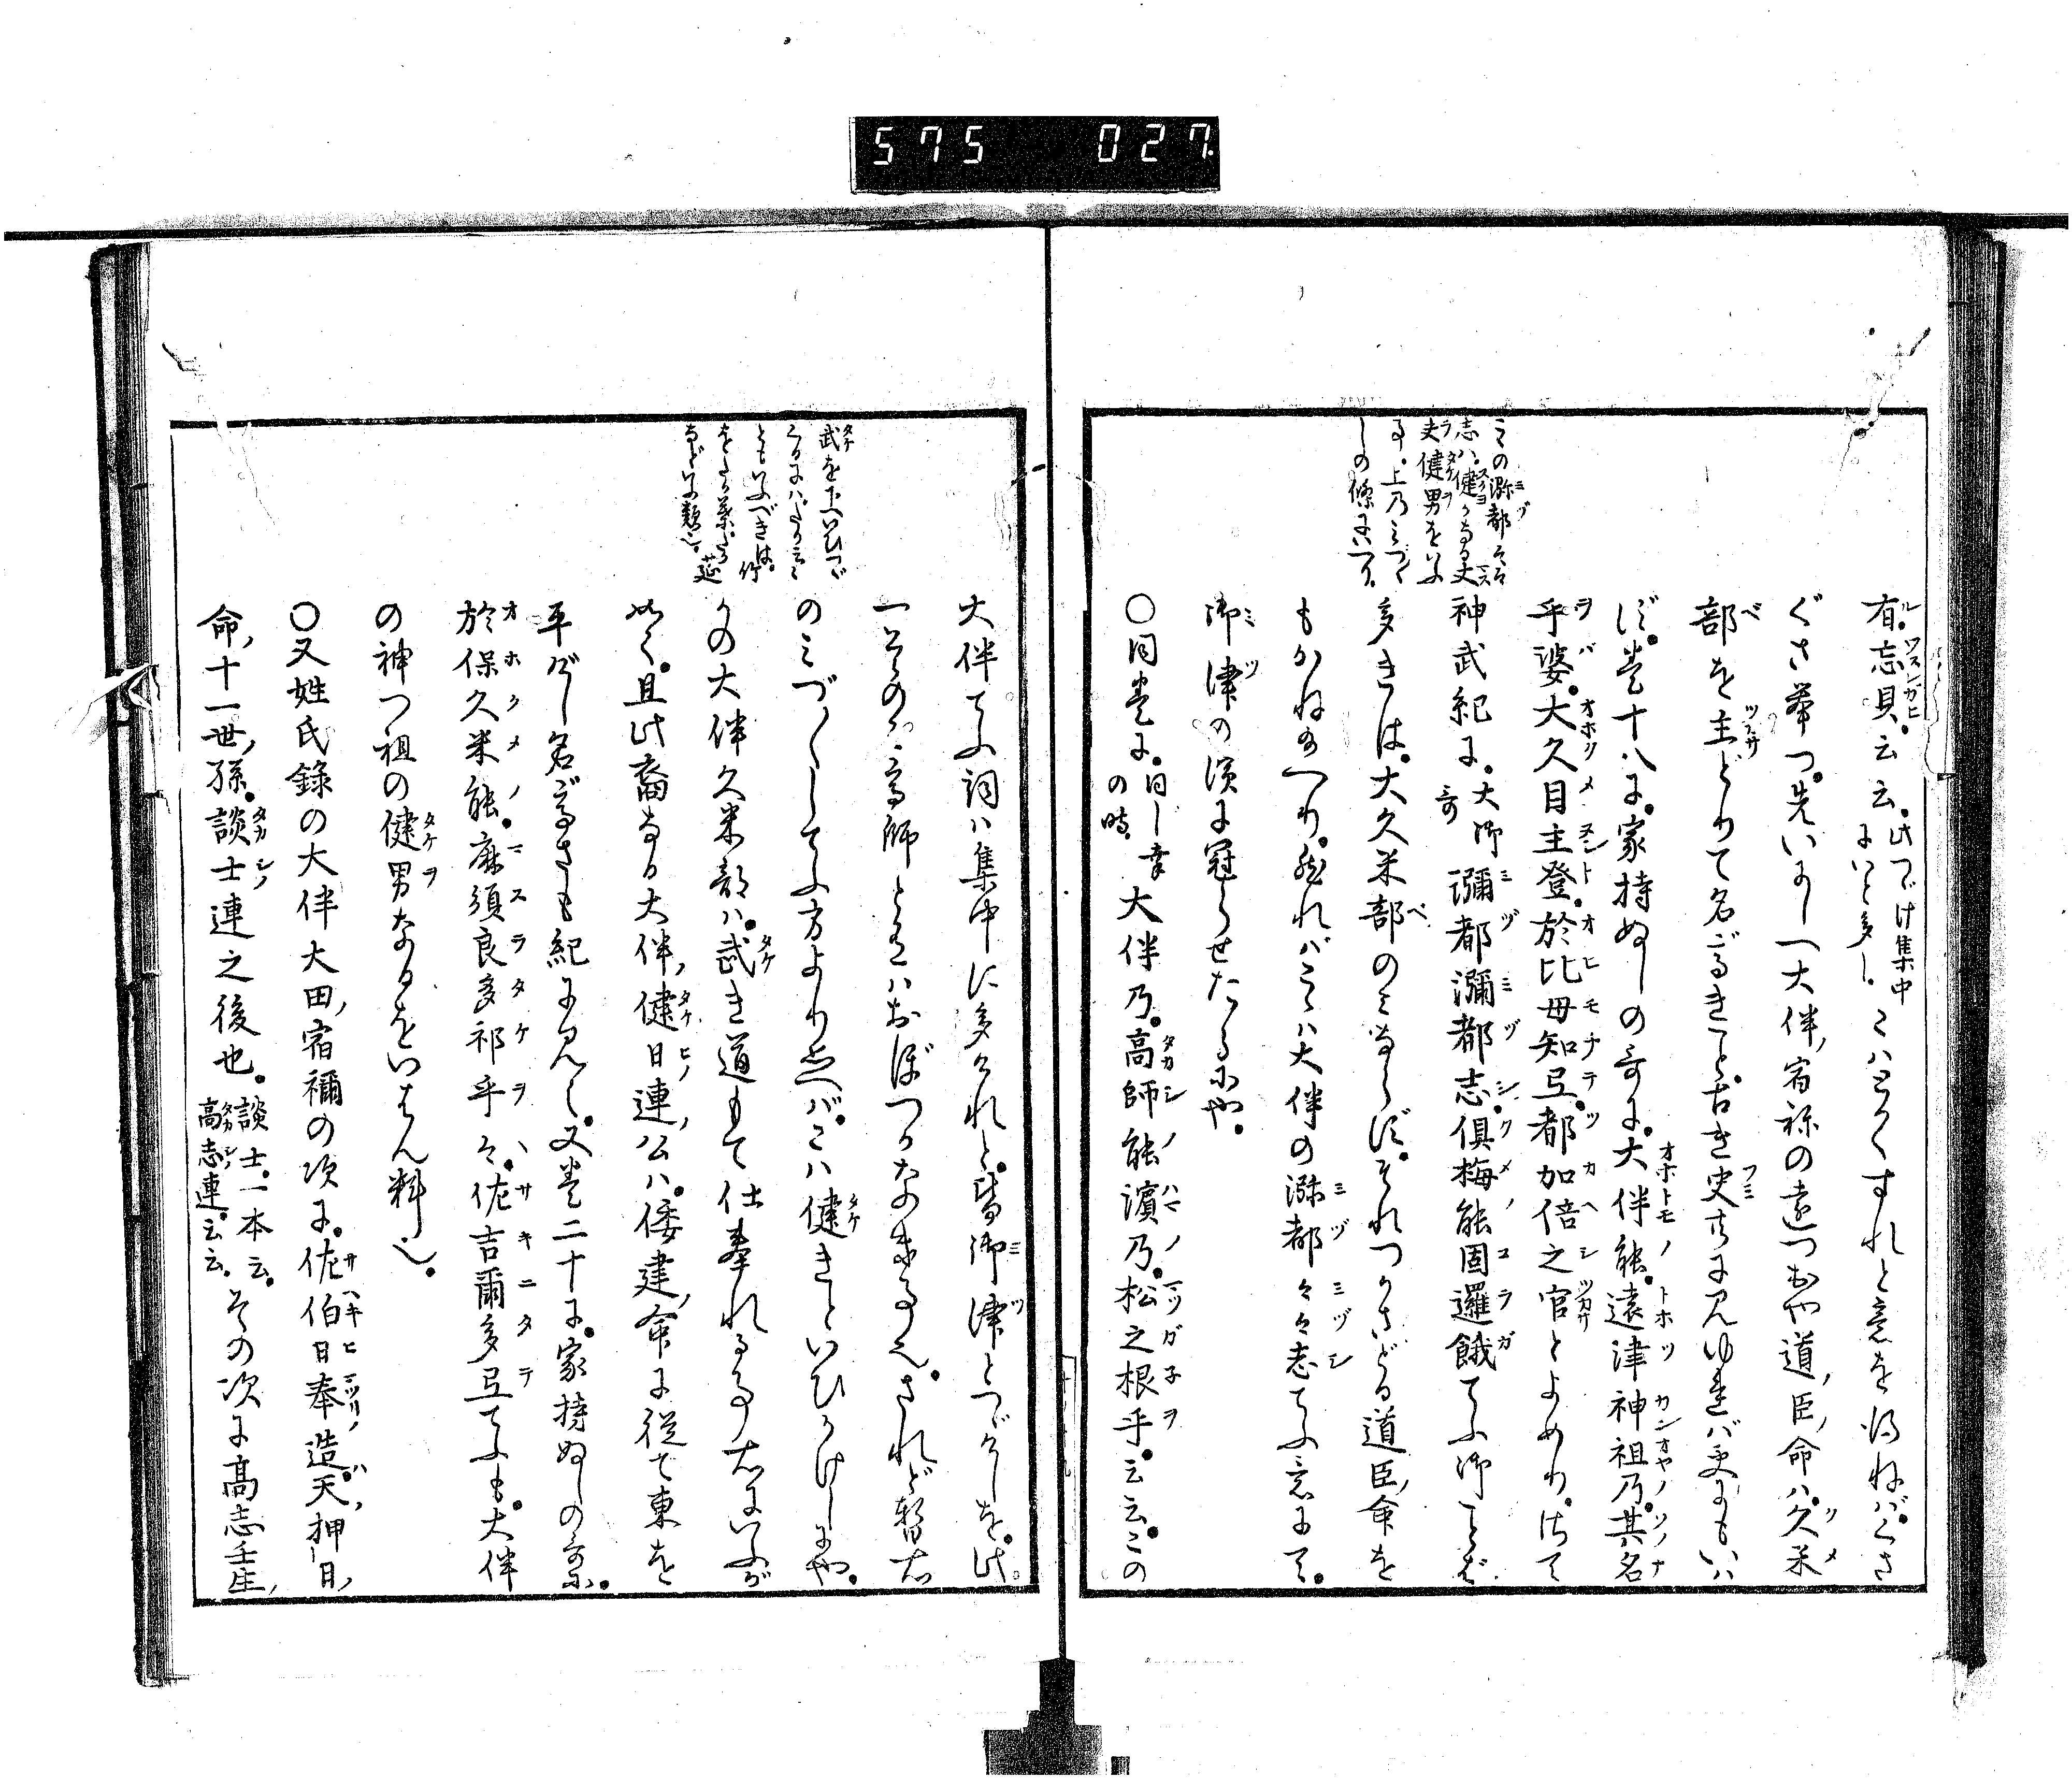 575 027
有。忘貝。云云。此つゞけ集中にいと多し。こはとかくすれと意を得ねば。くさ
ぐさ挙つ。先いにしへ大伴宿祢の遠つおや道臣命ハ。久米
部を主どりて名ごるきこと。古き史らに見ゆれバ更にもいは
ず。巻十八に。家持ぬしの哥に。大伴能。遠津神祖乃。其名
乎婆。大久目主登。於比母知弖。都加倍之官とよめり。さて
神武紀に。大御哥 瀰都瀰都志。倶梅能固邏餓てふ御ことば
多きは。大久米部のみならず。それつかさどる道臣命を
もかね給へり。然れバこゝハ大伴の瀰都々々志てふ意にて。
御津の濱に冠らせたるにや。
〇同巻に。同し幸の時。大伴乃。高師能濱乃。松之根乎。云云。この
こゝの瀰都々々
志ハ。健かなる丈
夫健男をいふ
事。上乃みづ〳〵
しの條にいへり。
大伴てふ詞ハ集中に多かれと。皆御津とつゞけしを。此
一ところ高師とあるハおぼつかなき事也。されど暫右
のみづ〳〵してふ方よりいへバ。こハ健きといひかけしにや。
かの大伴久米部ハ。武き道もて仕奉れる事右にいふが
如く。且此裔なる大伴健日連公ハ。倭建命に従て東を
平げし名ぐるきも紀に見ゆ。又巻二十に。家持ぬしの哥に。
於保久米能。麻須良多祁乎々。佐吉爾多弖てふも。大伴
の神つ祖の健男なるをいはん料也。
〇又姓氏録の大伴大田宿禰の次に。佐伯日奉造天押日
命十一世孫。談士連之後也。談士。一本云。高志連。云云。その次に高志壬生
武を下へいひつゞ
くるにハ。たかとも
ともいふべきは。竹
をたか葉。たか莚
などいふ類也。